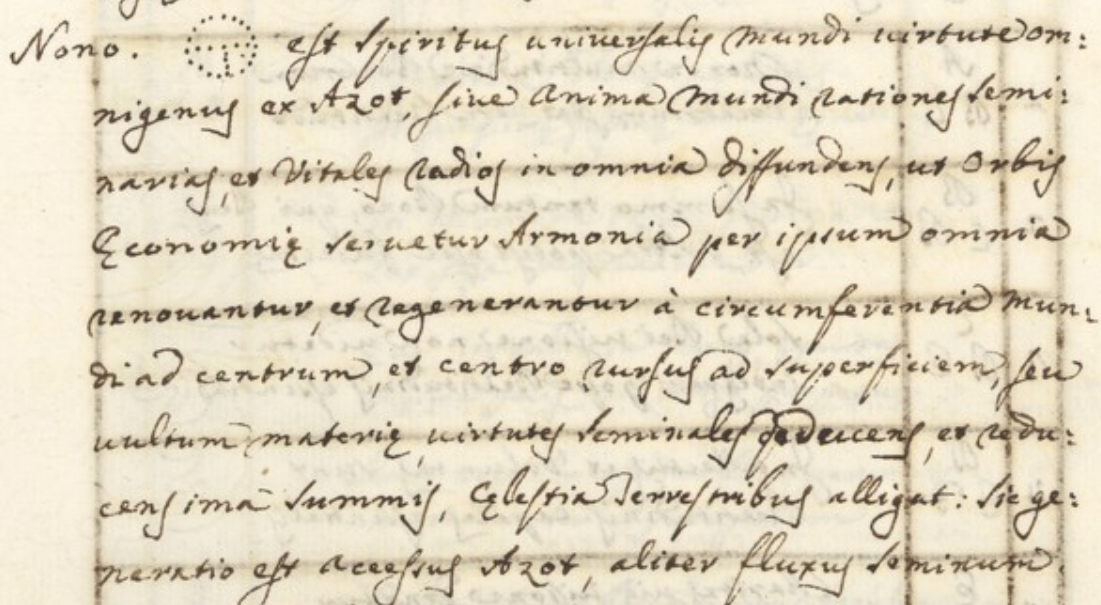 Nono. est spiritus universalis Mundi virtute om:
nigenus ex Azot, sive Anima Mundi rationes semi:
narias, et Vitales radios in omnia diffundens, ut Orbis
Economię servetur Armonia per ipsum omnia
renovantur, et regenerantur à circumferentia Mun:
di ad centrum, et centro rursus ad superficiem, seu
vultum materię, virtutes seminales deducens, et redu:
cens ima summis, Cęlestia Terrestribus alligat: Sic ge:
neratio est accessus Azot, aliter fluxus seminum.